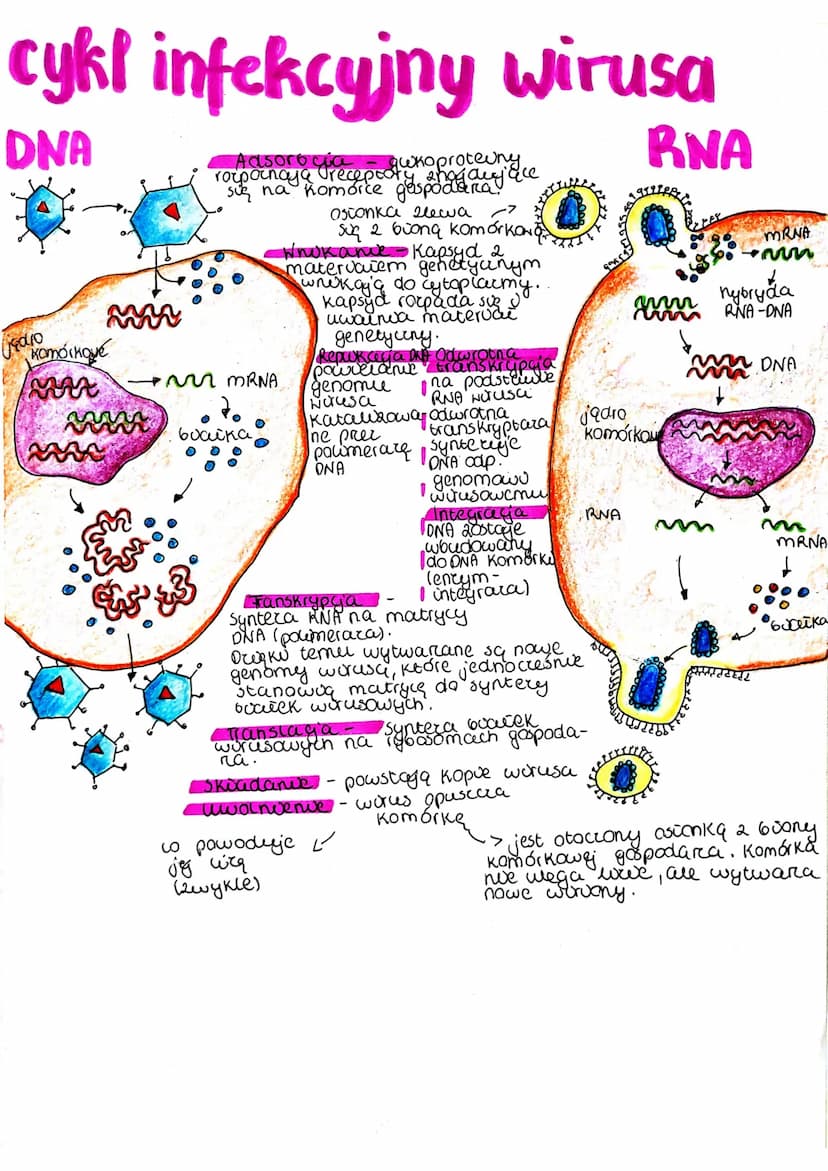 cykl infekcyjny wirusa
DNA
RNA
Adsorbcja – glikoproteiny
rozpoznają receptory znajdujące
się na komórce gospodarza.
osłonka zlewa
się z błoną komórkową
Wnikanie – Kapsyd z
materiałem genetycznym
wnikają do cytoplazmy.
kapsyd rozpada się i
uwalnia materiał
genetyczny.
Replikacja DNA
powielanie
genomu
wirusa
katalizowa-
ne przez
polimerazę
DNA
Odwrotna
transkrypcja
na podstawie
RNA wirusa
odwrotna
transkryptaza
syntezuje
DNA odp.
genomowi
wirusowemu
Integracja
DNA zostaje
wbudowany
do DNA komórki
(enzym-
integraza)
Transkrypcja –
synteza RNA na matrycy
DNA (polimeraza).
Dzięki temu wytwarzane są nowe
genomy wirusa, które jednocześnie
stanowią matrycę do syntezy
białek wirusowych.
Translacja – synteza białek
wirusowych na rybosomach gospoda-
rza.
Składanie – powstają kopie wirusa
Uwolnienie – wirus opuszcza
komórkę
co powoduje
jej lizę
(zwykle)
jest otoczony osłonką z błony
komórkowej gospodarza. Komórka
nie ulega lizie, ale wytwarza
nowe wiriony.
jądro
komórkowe
mRNA
białka
mRNA
hybryda
RNA-DNA
DNA
jądro
komórkowe
RNA
mRNA
białka